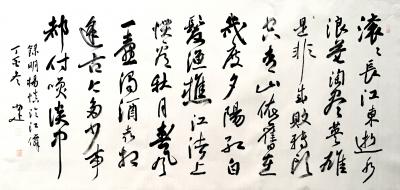 滚〻長江東逝水
浪花淘盡英雄
是非成敗轉頭
空青山依舊在
幾度夕陽紅白
髮漁樵江渚上
慣看秋月春風
一壺濁酒喜相
逢古今多少事
都付笑談中
錄明楊慎臨江僊
丁酉冬